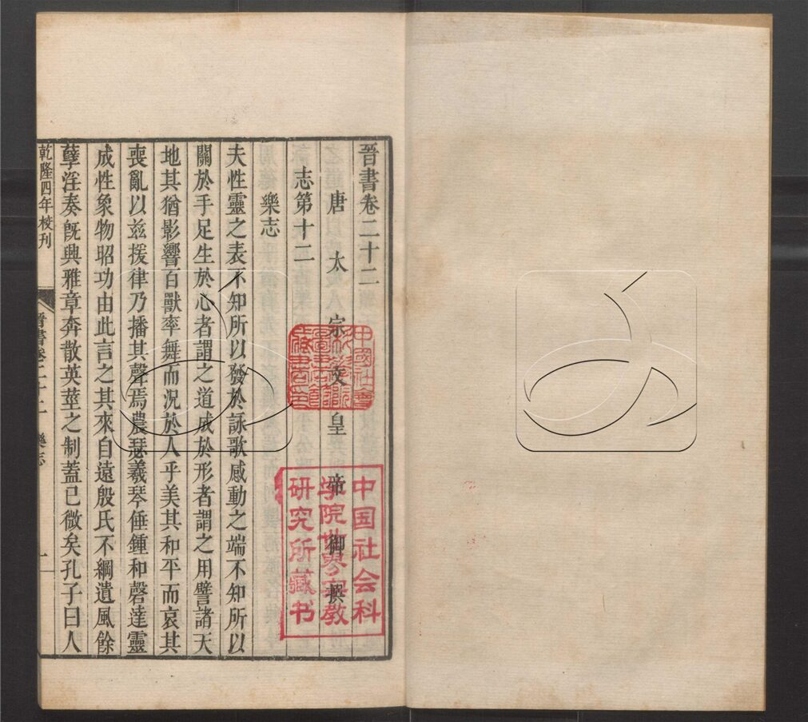 晉書卷二十二
唐太宗文皇帝御撰
志第十二
樂志
夫性靈之表不知所以發於詠歌感動之端不知所以
關於手足生於心者謂之道成於形者謂之用譬諸天
地其猶影響百獸率舞而況於人乎美其和平而哀其
喪亂以兹援律乃播其聲焉農瑟羲琴倕鍾和磬達靈
成性象物昭功由此言之其來自遠殷氏不綱遺風餘
孽淫奏旣興雅章奔散英莖之制蓋已微矣孔子曰人
乾隆四年校刊
晉書卷二十二 樂志 一
中國社會
科學院
圖書館
藏書
中国社会科
学院世界宗教
研究所藏书